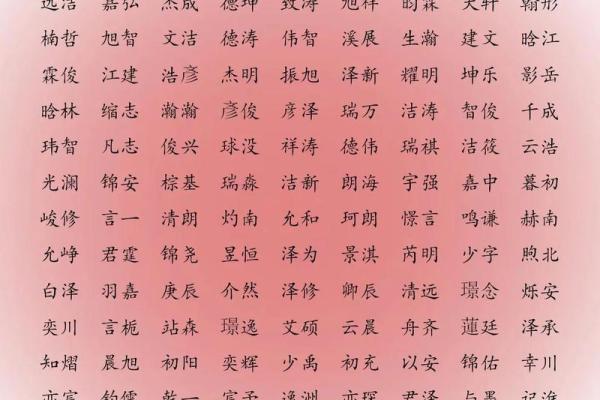 远洁 嘉弘 杰成 德坤 致涛 旭祥 昀霖 天轩 翰彤
楠哲 旭智 文洁 德涛 伟智 溪展 生瀚 建文 晗江
霖俊 江建 浩彦 杰明 振旭 泽新 耀明 坤乐 影岳
晗林 缩志 瀚瀚 彦俊 彦泽 瑞万 洁涛 智俊 千成
玮智 凡志 俊兴 球没 祥涛 德伟 瑞祺 洁筱 云浩
光澜 锦安 棕基 瑞淼 洁新 朗海 宇强 嘉中 暮初
峻修 言一 清朗 灼南 允和 珂朗 憬言 鸣谦 赫南
允峥 君霆 锦尧 昱恒 泽为 景淇 芮明 少字 煦北
白泽 羽嘉 庚辰 介然 泽修 卿辰 清远 璟念 烁安
奕川 言栀 站森 璟逸 艾硕 云晨 舟齐 蓮廷 泽承
知熠 晨旭 初阳 奕辉 少禹 初充 以安 锦佑 幸川
亦宸 钧儒 乾一 宸予 逸洲 亦琛 君泽 与墨 记淮